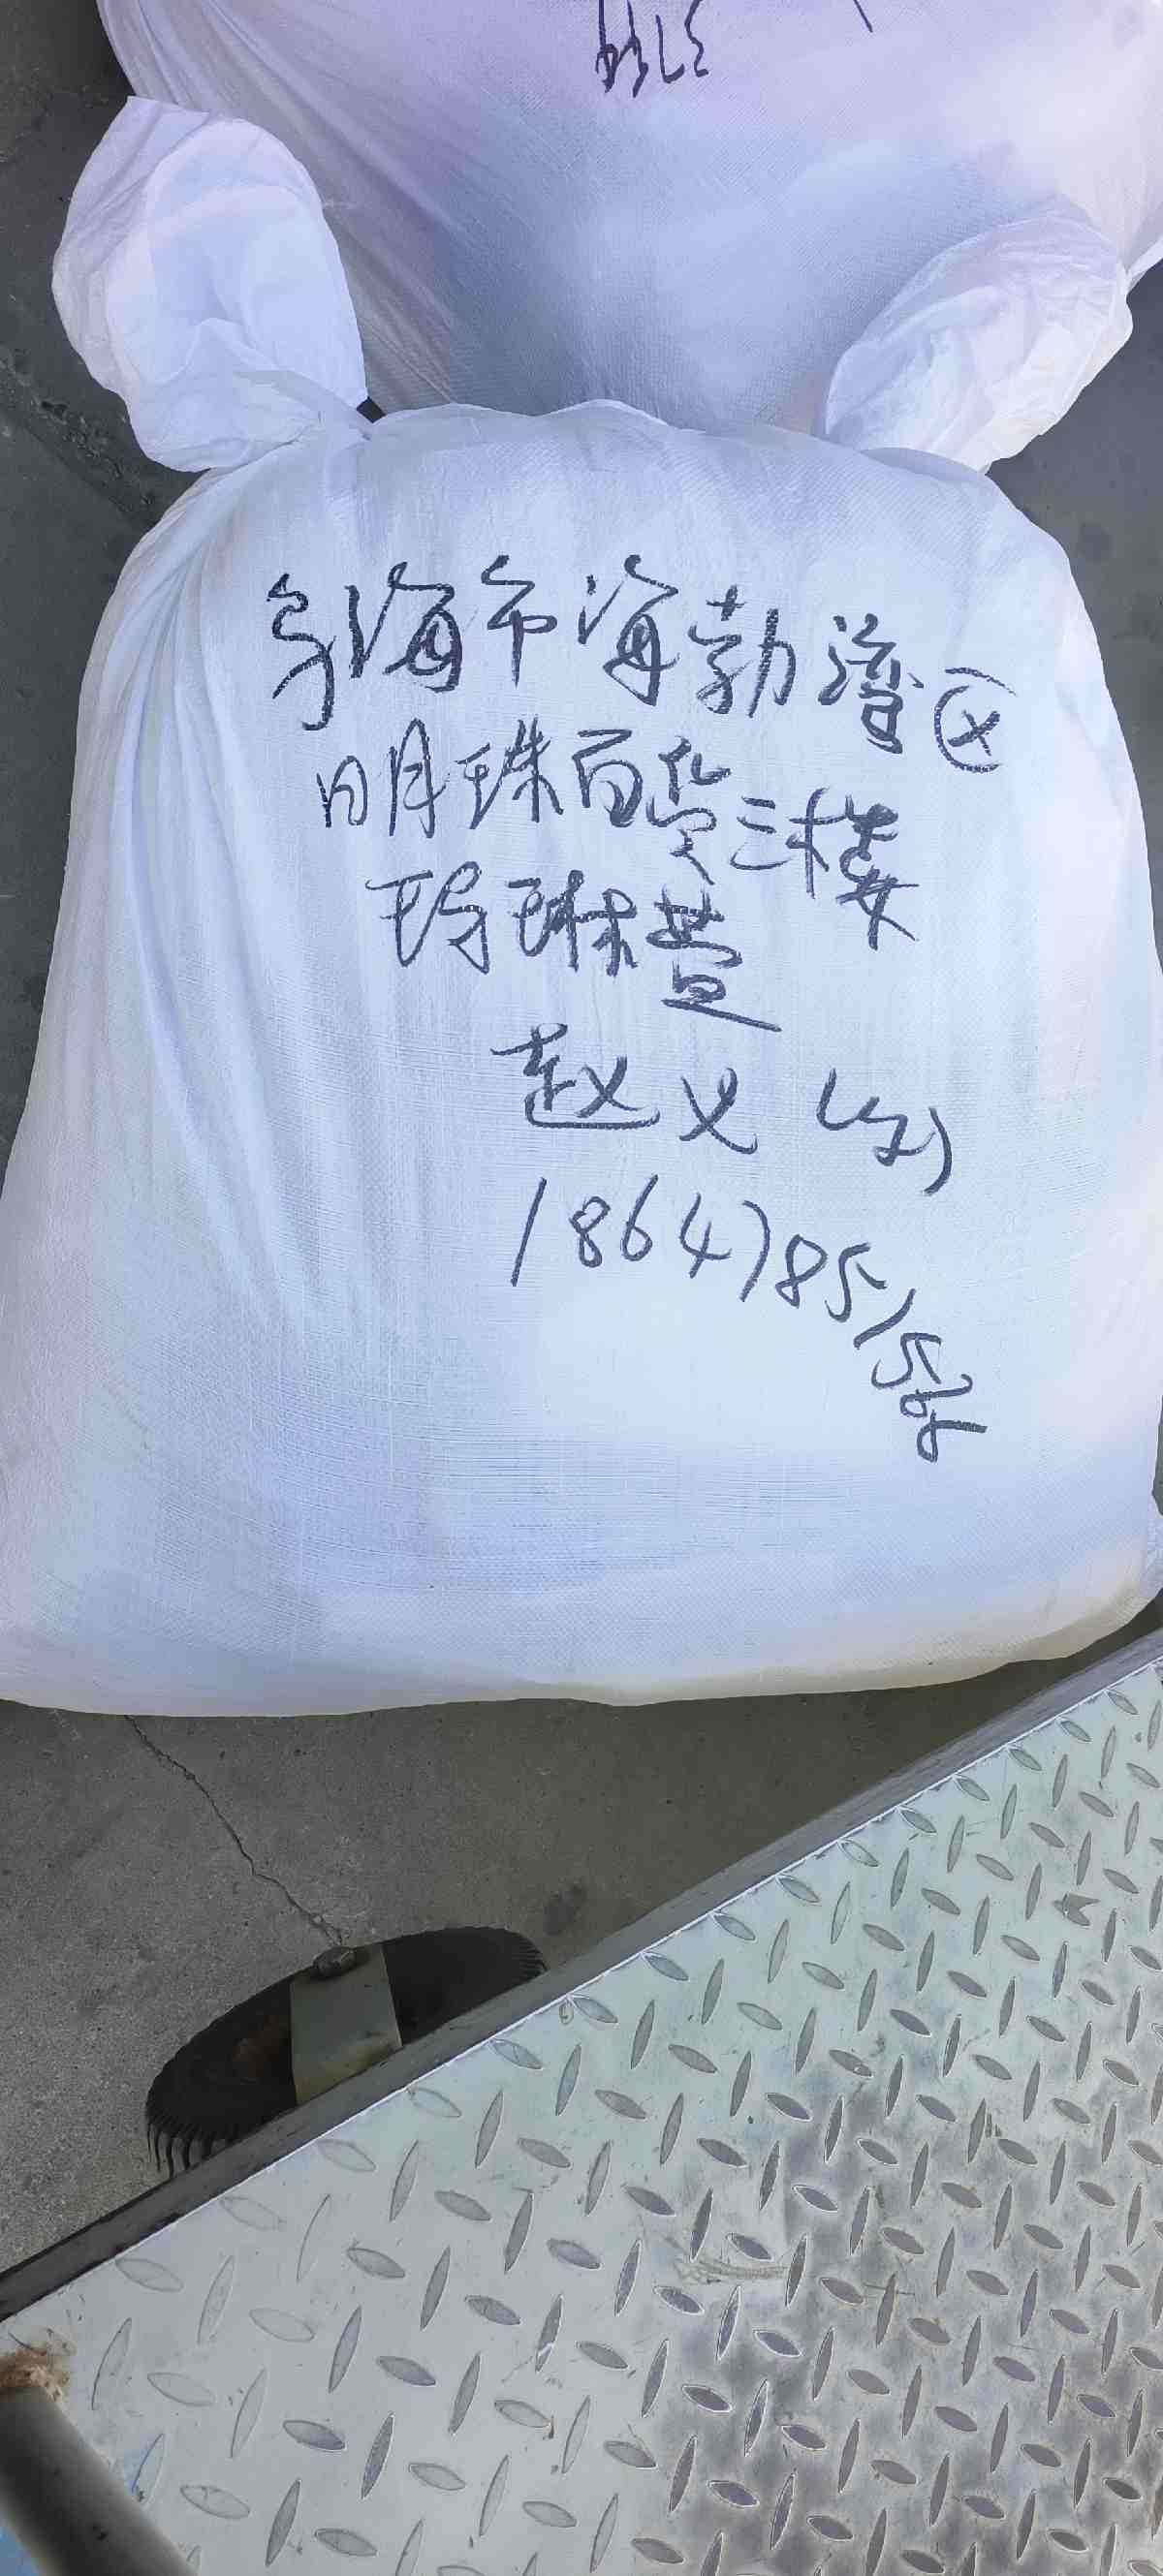 乌海市海勃湾区
明珠百货三楼
玛琳萱
赵义(收)
186478515